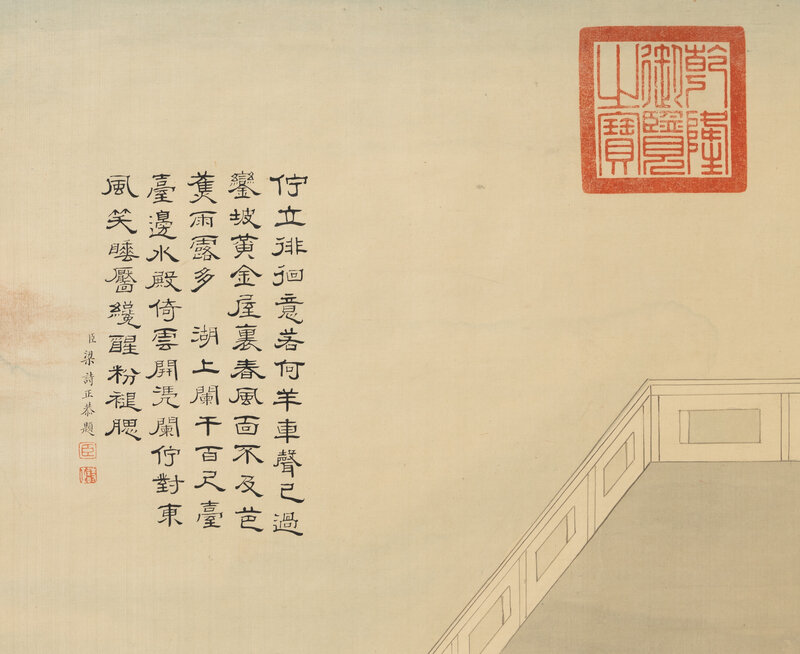 乾隆
御覽
之寶
佇立徘徊意若何羊車聲已過
鑾坡黃金屋裏春風面不及芭
蕉雨露多 湖上闌干百尺臺
臺邊水殿倚雲開凭闌佇對東
風笑睡靨纔醒粉褪腮
臣梁詩正恭題
臣